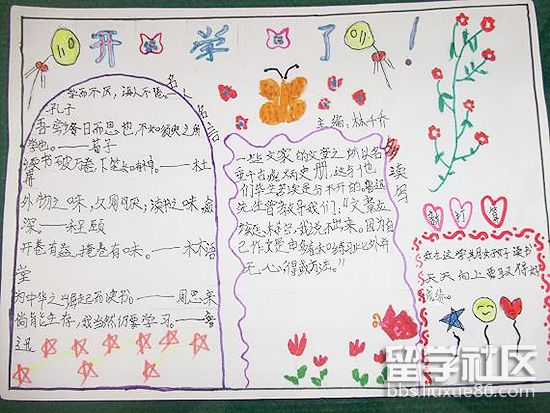 开学了！
名人名言
学而不厌，诲人不倦。
孔子
吾尝终日而思也，不如须臾之所
学也。——荀子
读书破万卷 下笔如有神——杜
甫
外物之味，久则厌；读书之味，愈
深。——程颐
开卷有益，掩卷有味。——林语
堂
为中华之崛起而读书。——周恩来
倘能生存，我当然仍要学习。——鲁
迅
主编：林
读写
一些文家的文章之所以名
垂千古或万史册，这与他
们毕生苦读是分不开的。鲁迅
先生曾教导我们："文章应
该怎样写，我说不出来。因为自
己作文是由多看和练习，此外并
无心得或方法。"
新打算
我在这学期好好读书
天天向上 取得好
成绩。
留学社区
bbs.liuxue86.com